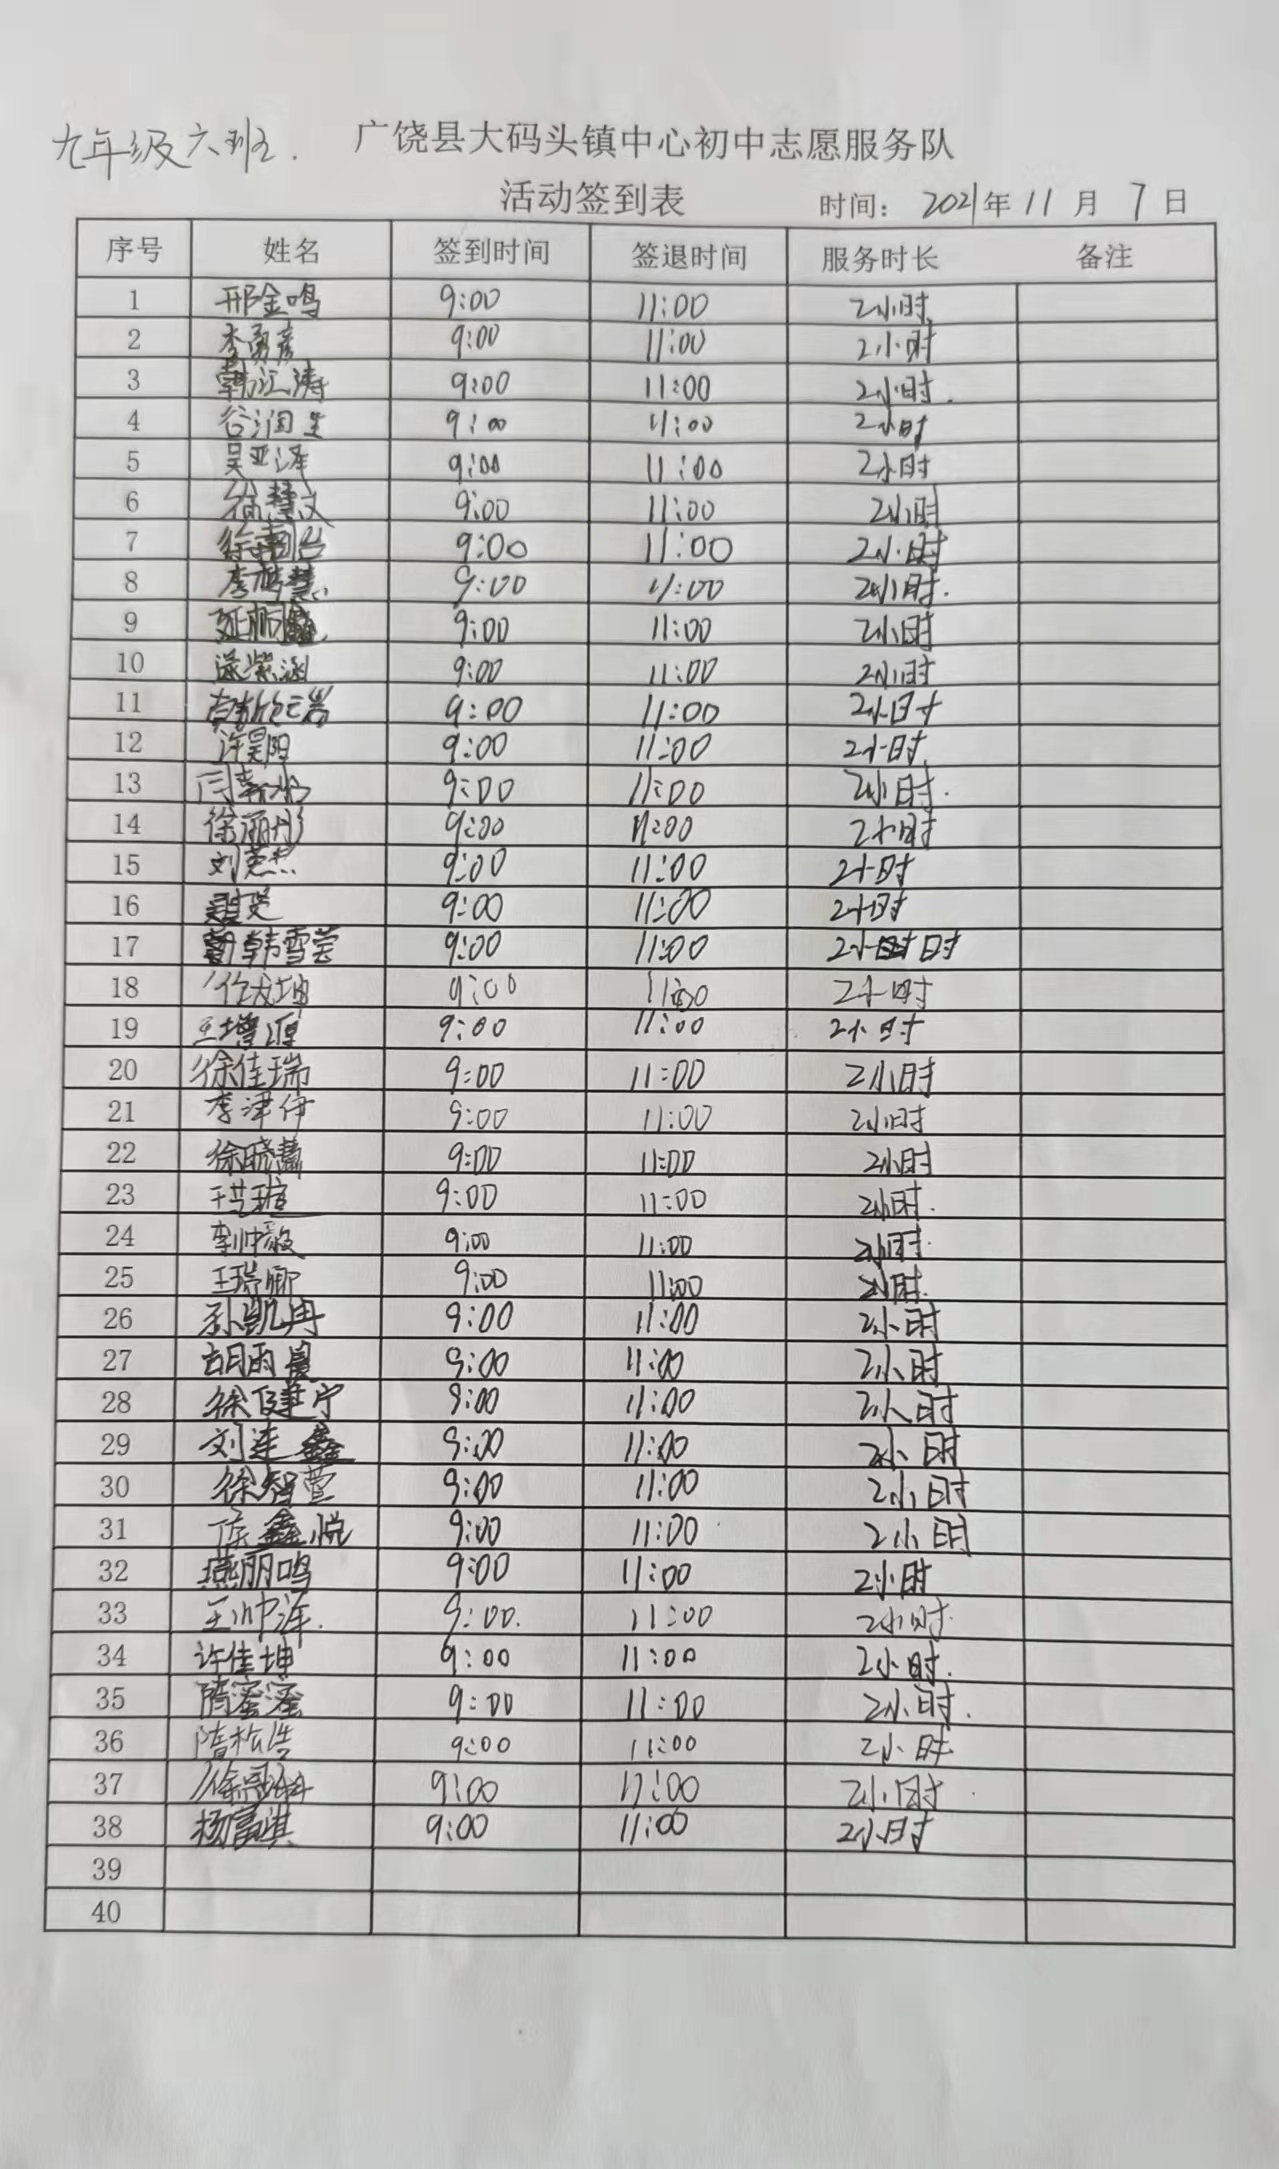 九年级六班. 广饶县大码头镇中心初中志愿服务队
活动签到表 时间: 2021年 11 月 7 日
序号 姓名 签到时间 签退时间 服务时长 备注
1 邢金鸣 9:00 11:00 2小时
2 李勇彦 9:00 11:00 2小时
3 韩汇涛 9:00 11:00 2小时.
4 谷润生 9:00 11:00 2小时
5 吴亚泽 9:00 11:00 2小时
6 徐慧文 9:00 11:00 2小时
7 9:00 11:00 2小时
8 9:00 11:00 2小时.
9 9:00 11:00 2小时
10 紫涵 9:00 11:00 2小时
11 9:00 11:00 2小时
12 许昊阳 9:00 11:00 2小时
13 9:00 11:00 2小时.
14 徐丽彤 9:00 11:00 2小时
15 9:00 11:00 2小时
16 9:00 11:00 2小时
17 韩雪莹 9:00 11:00 2小时
18 9:00 11:00 2小时
19 王增源 9:00 11:00 2小时
20 徐佳瑞 9:00 11:00 2小时
21 李津伊 9:00 11:00 2小时
22 徐晓慧 9:00 11:00 2小时
23 王艺璇 9:00 11:00 2小时.
24 李帅毅 9:00 11:00 2小时.
25 王瑞卿 9:00 11:00 2小时.
26 孙凯冉 9:00 11:00 2小时
27 胡雨晨 9:00 11:00 2小时
28 徐健宁 9:00 11:00 2小时
29 刘连鑫 9:00 11:00 2小时
30 徐智萱 9:00 11:00 2小时
31 鑫悦 9:00 11:00 2小时
32 燕丽鸣 9:00 11:00 2小时
33 王帅泽. 9:00. 11:00 2小时.
34 许佳坤 9:00 11:00 2小时.
35 隋蜜蜜 9:00 11:00 2小时.
36 隋松浩 9:00 11:00 2小时
37 9:00 11:00 2小时
38 杨富淇 9:00 11:00 2小时
39
40